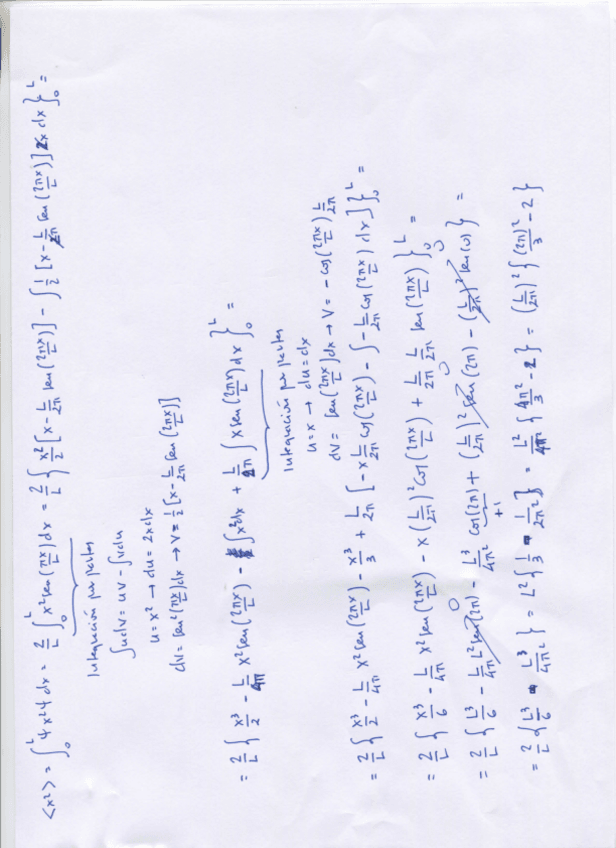 <x²> = ∫₀ᴸ ψ x² ψ dx = 2/L ∫₀ᴸ x² sen(πx/L) dx = 2/L { x²/2 [x - L/2π sen(2πx/L)] - ∫ 1/2 [x - L/2π sen(2πx/L)] 2x dx }₀ᴸ =
Integración por partes
∫udv = uv - ∫vdu
u = x² → du = 2xdx
dv = sen²(πx/L)dx → v = 1/2 [x - L/2π sen(2πx/L)]
= 2/L { x³/2 - L/4π x² sen(2πx/L) - ∫x²dx + L/2π ∫ x sen(2πx/L) dx }₀ᴸ =
Integración por partes
u = x → du = dx
dv = sen(2πx/L)dx → v = -cos(2πx/L) L/2π
= 2/L { x³/2 - L/4π x² sen(2πx/L) - x³/3 + L/2π [-x L/2π cos(2πx/L) - ∫ - L/2π cos(2πx/L) dx] }₀ᴸ =
= 2/L { x³/6 - L/4π x² sen(2πx/L) - x (L/2π)² cos(2πx/L) + L/2π L/2π sen(2πx/L) }₀ᴸ =
= 2/L { L³/6 - L/4π L² sen(2π) - L³/4π² cos(2π) + (L/2π)² sen(2π) - (L/2π)² sen(0) } =
0 +1 0 0
= 2/L { L³/6 - L³/4π² } = L² { 1/3 - 1/2π² } = L²/4π² { 4π²/3 - 2 } = (L/2π)² { (2π)²/3 - 2 }